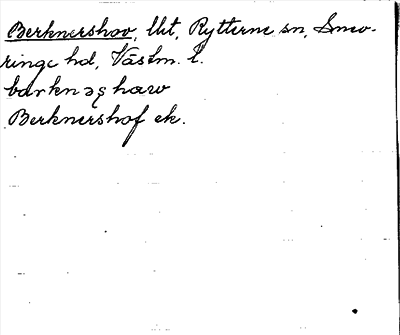 Berknershov, lht, Rytterne sn, Snev-
ringe hd, Västm. l.
barknəş hɑ:v
Berknershof ek.